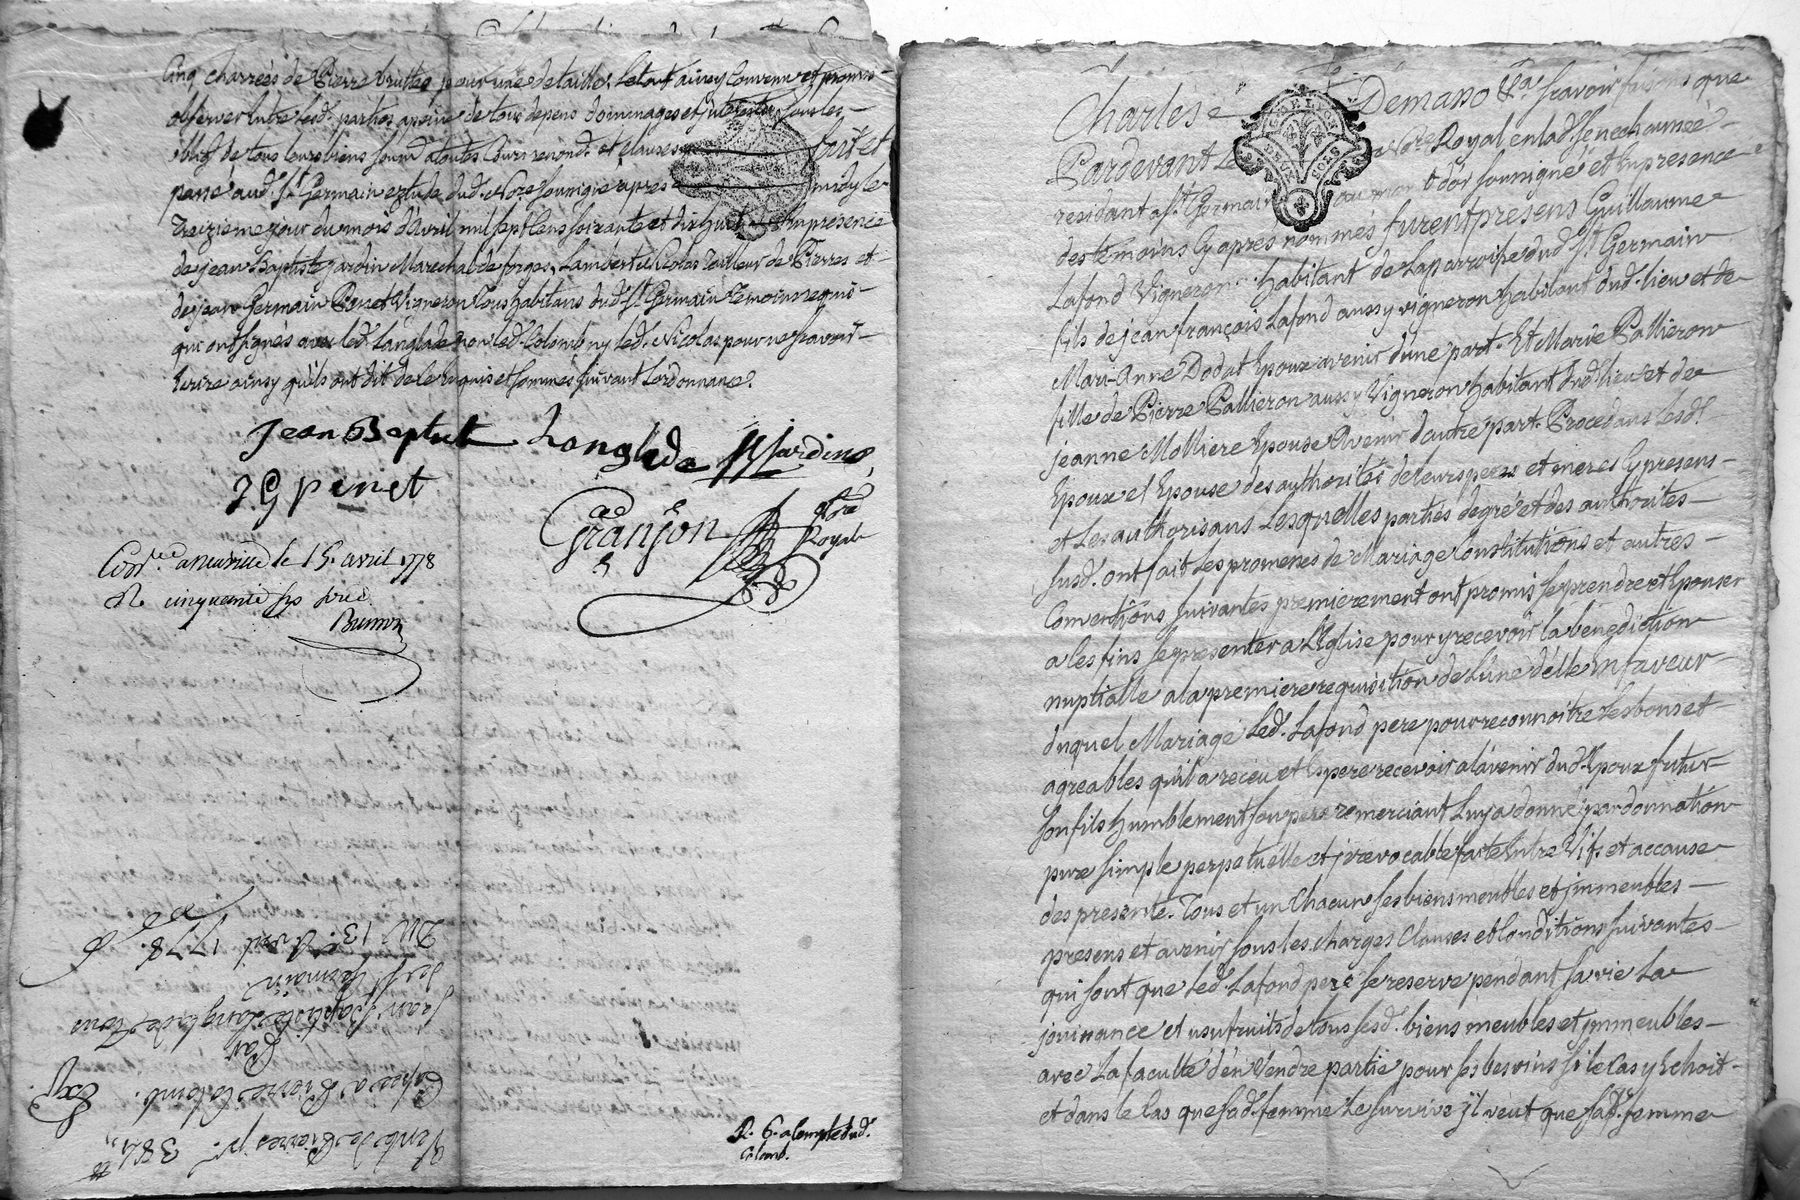 Cinq charrées de Pierre bruttes pour une de taille. Le tout ainsy convenu et promis
observer entre lesd. parties a peine de tous depens dommages et interests sous les
oblig. de tous leurs biens soumis a toutes Cours renond. et clauses fait et
passé aud. St Germain estude dud. Nore. soussigné apres midy le
Treizieme jour du mois d'avril mil sept cens soixante et dix huit en presence
de jean Baptiste jardin Marechal de forges, Lambert Nicolas Tailleur de Pierres et
de jean Germain Penet Vigneron Tous habitans dud. St Germain Temoins requis
qui ont signés avec led. Langlade non led. Colomb ny led. Nicolas pour ne sçavoir
ecrire ainsy qu'ils ont dit de ce requis et sommés suivant Lordonnance.
Jean Baptiste Langlade Jardin
J. G penet
Granjon Nore Royal
Conlé. a neuville le 15. avril 1778
R cinquante six sols
R. 6. a Compte dud.
Colomb.
Vente de Pierres pr. 384 ₶
Passée a Pierre Colomb.
Par
Jean Baptiste Langlade
de St Germain
Du 13. Avril 1778.
GN. DE LYON
DEUX SOLS
Charles De Masso &a. sçavoir faisons que
Pardevant Le Nore. Royal en lad. senechaussée
residant a St. Germain au mont d'or soussigné et en presence
des temoins cy apres nommés furent presens Guillaume
Lafond Vigneron habitant de La parroisse dud. St Germain
fils de jean françois Lafond aussy vigneron habitant dud. lieu et de
Mari-Anne Dodat Epoux avenir d'une part. Et Marie Pallieron
fille de Pierre Pallieron aussy Vigneron habitant dud. lieu et de
jeanne Molliere Epouse avenir d'autre part. Procedans lesd.
Epoux et Epouse des authorités de leurs peres et meres cy presens
et Les authorisans Lesquelles parties de gré et des authorités
susd. ont fait Les promesses de Mariage Constitutions et autres
Conventions suivantes premierement ont promis se prendre et Epouser
a ces fins se presenter a L'Eglise pour y recevoir la benediction
nuptialle a la premiere requisition de L'une d'elle En faveur
duquel Mariage Led. Lafond pere pour reconnoitre Les bons et
agreables qu'il a receu et Espere recevoir a lavenir dud. Epoux futur
son fils humblement son pere remerciant Luy a donné par donnation
pure simple perpetuelle et jrrevocable faite Entre Vifs et accause
des presente. Tous et un Chacun ses biens meubles et jmmeubles
presens et avenir sous les charges Clauses et Conditions suivantes
qui sont que Led. Lafond pere se reserve pendant sa vie La
jouissance et usufruits de tous sesd. biens meubles et jmmeubles
avec La faculté d'en Vendre partie pour ses besoins si le Cas y Echoit
et dans le Cas que sad. femme Le survive jl veut que sad. femme